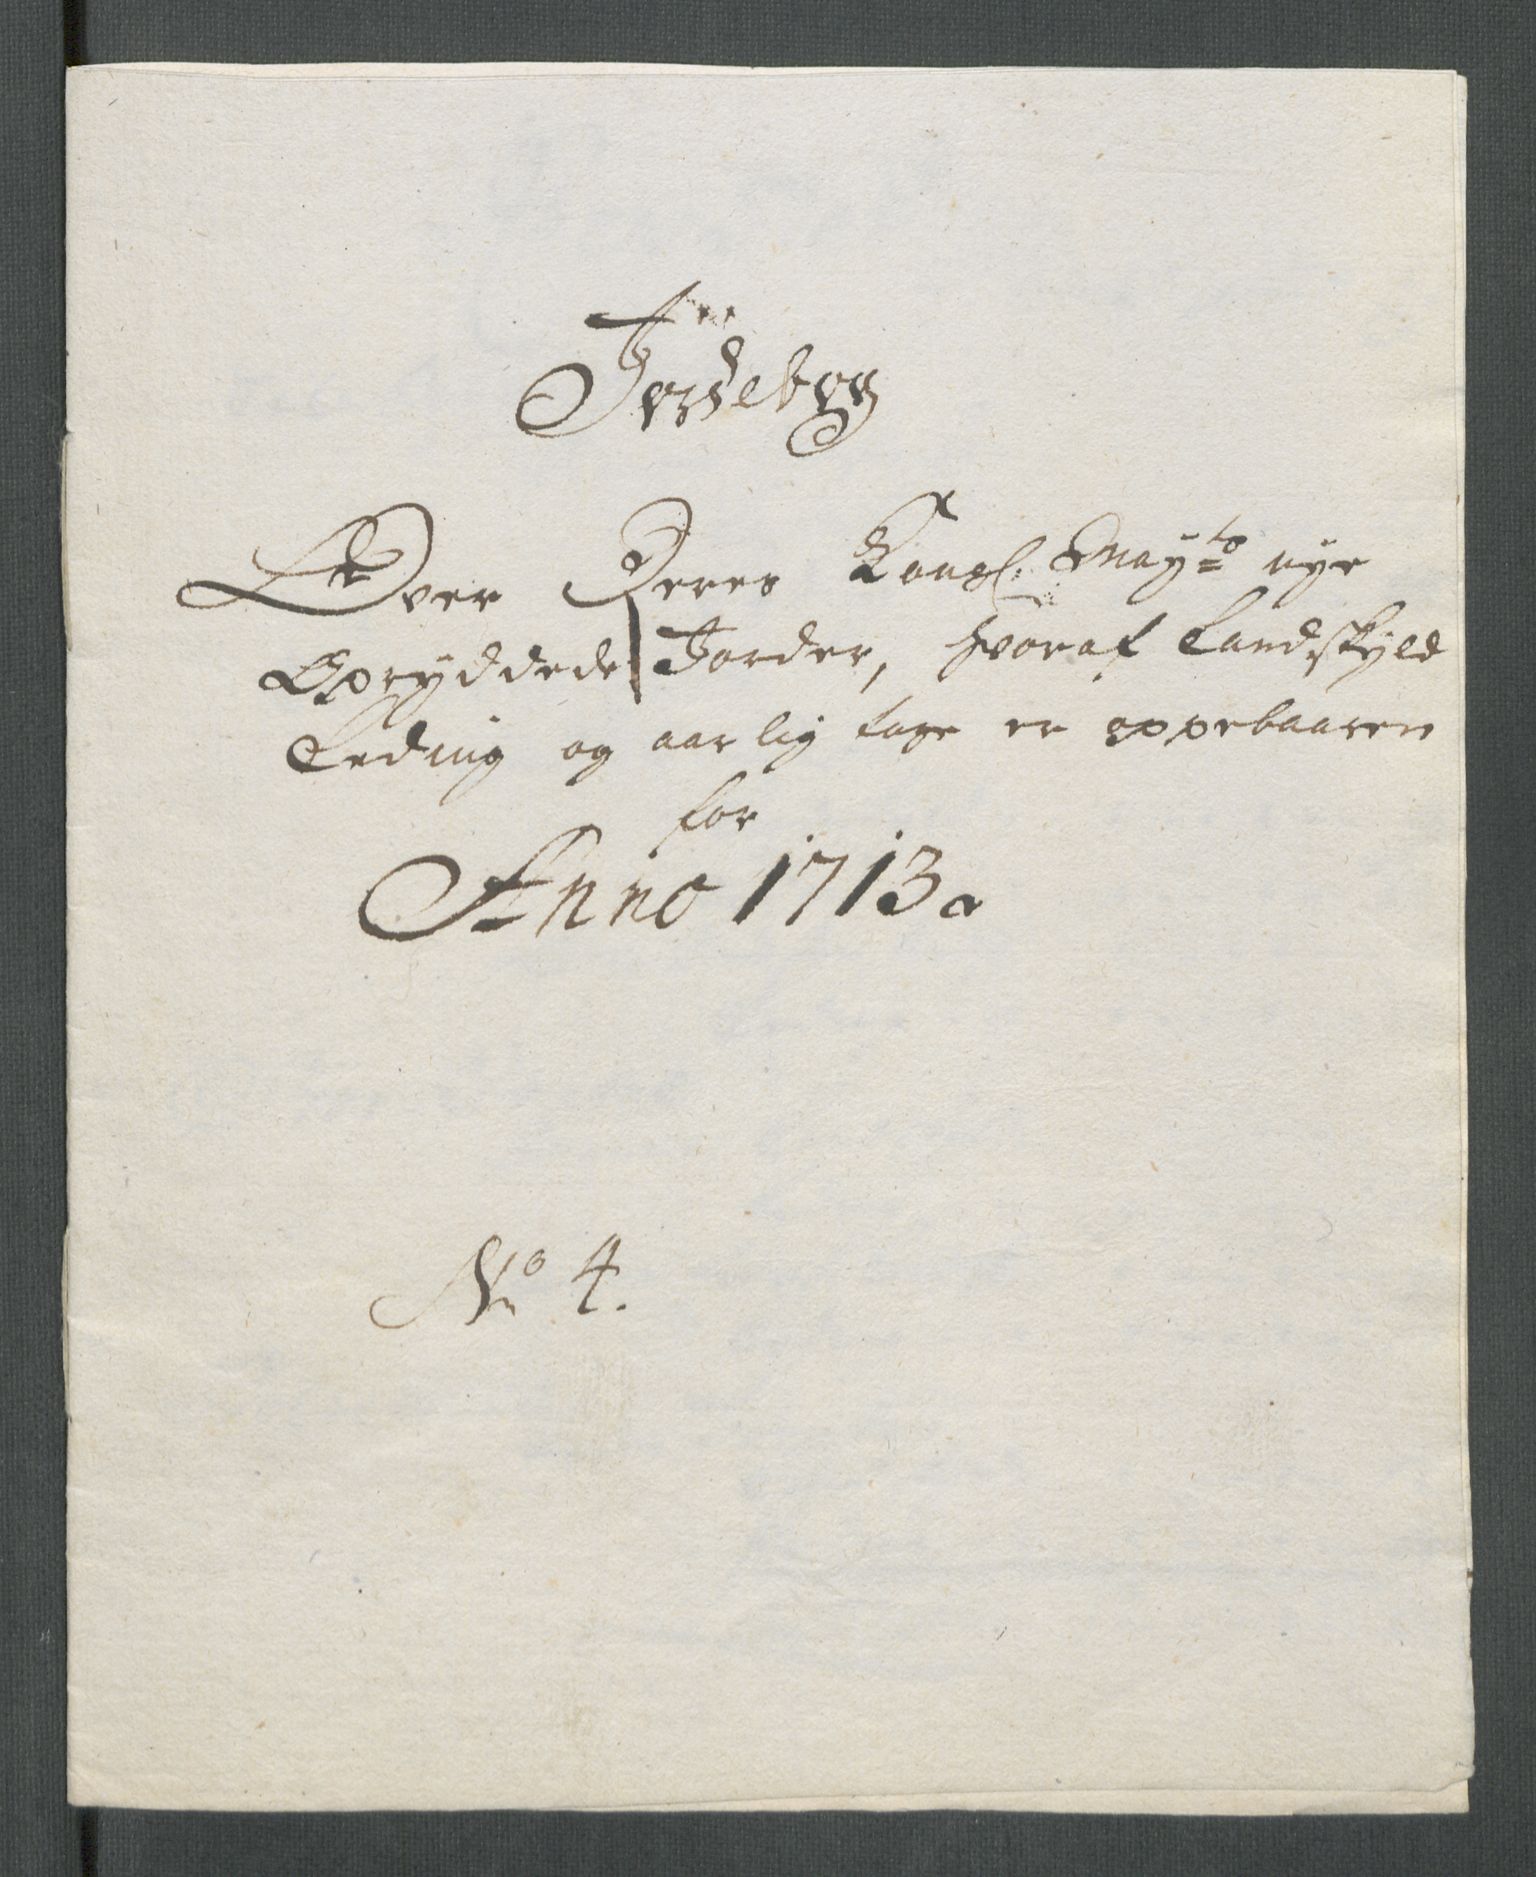 Jordebog
Over Deres Kongl: May:ts nye
Opryddede Jorder, hvoraf Landskyld
Leding og aarlig tage er oppebaaren
for
Anno 1713.
No 4.